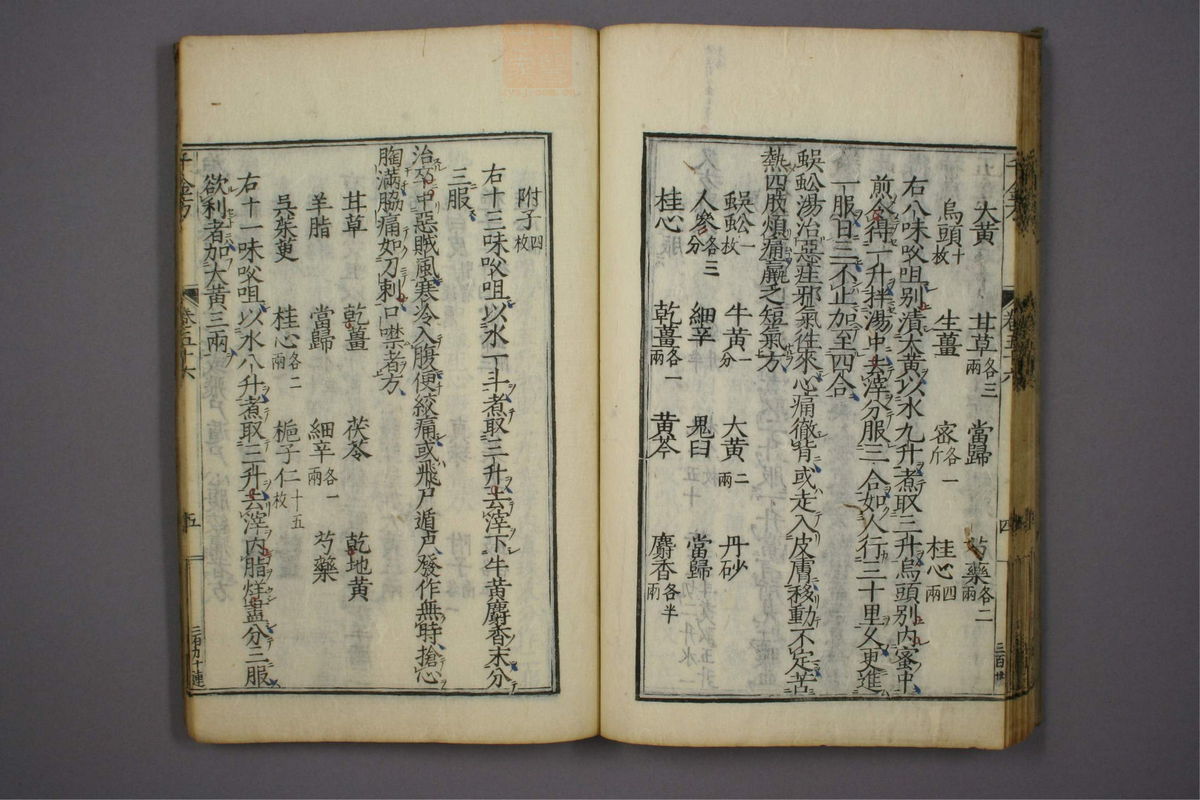 大黄　甘草各三兩　當歸　芍藥各二兩
烏頭十枚　生薑　蜜各一斤　桂心四兩
右八味㕮咀別漬大黄以水九升煮取三升烏頭別内蜜中
煎令得一升拌湯中去滓分服三合如人行三十里又更進
一服日三不止加至四合
蜈蚣湯治惡疰邪氣往來心痛徹背或走入皮膚移動不定苦
熱四肢煩痛羸乏短氣方
蜈蚣一枚　牛黄一分　大黄二兩　丹砂
人參各三分　細辛　鬼臼　當歸
桂心　乾薑各一兩　黄芩　麝香各半兩
附子四枚
右十三味㕮咀以水一斗煮取三升去滓下牛黄麝香末分
三服
治卒中惡賊風寒冷入腹便絞痛或飛尸遁尸發作無時搶心
胸滿脇痛如刀刺口噤者方
甘草　乾薑　茯苓　乾地黄
羊脂　當歸　細辛各一兩　芍藥
吳茱萸　桂心各二兩　梔子仁十五枚
右十一味㕮咀以水八升煮取三升去滓内脂烊盡分三服
欲利者加大黄二兩
千金方　卷五十六　五